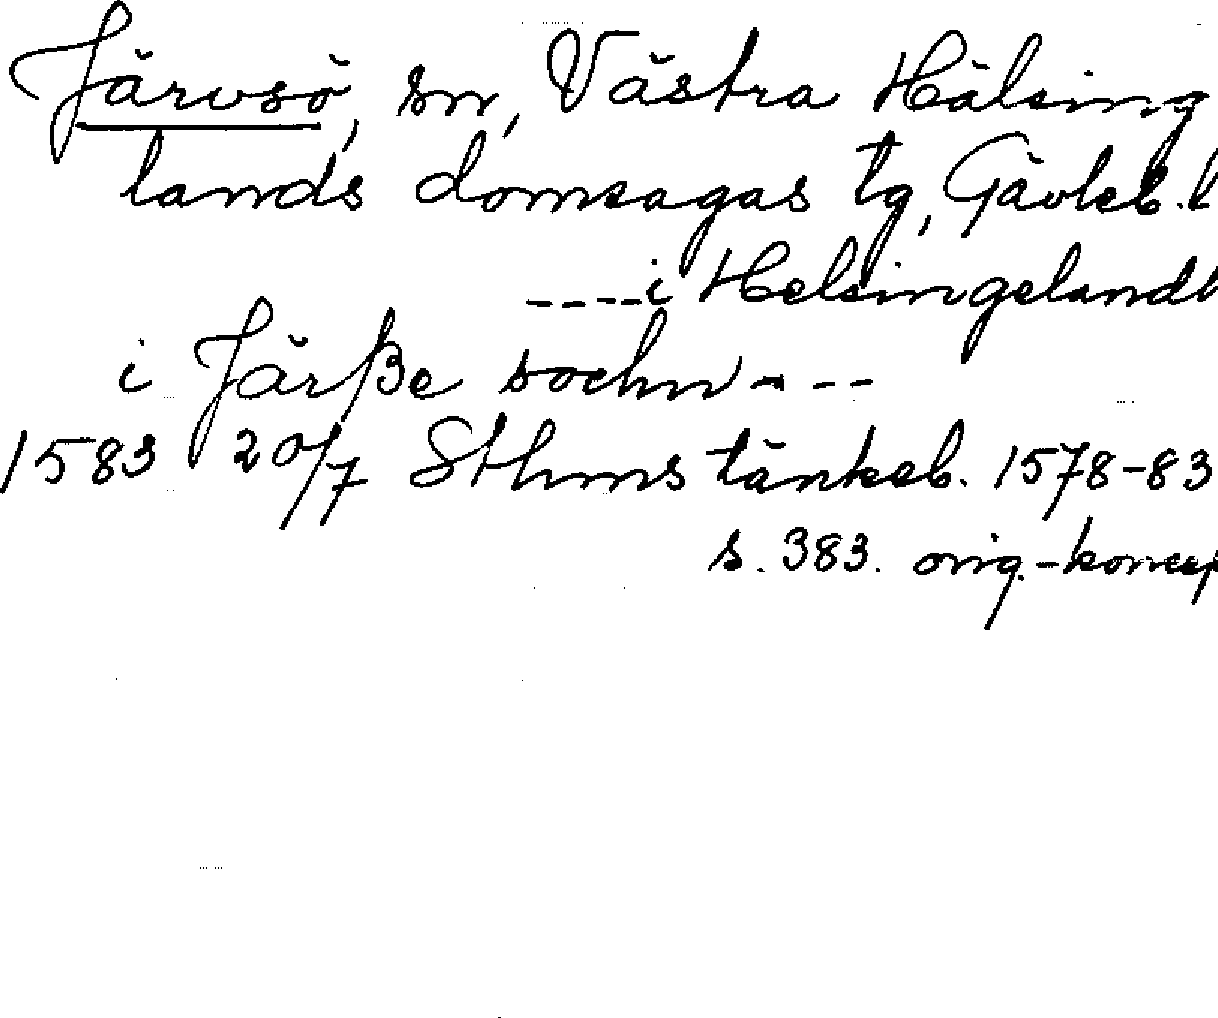 Järvsö, sn, Västra Hälsing
lands domsagas tg, Gävleb. l
----i Helsingelandh
i Järße sochn ---
1583 20/7 Sthms tänkeb. 1578-83
s. 383. orig.-koncep